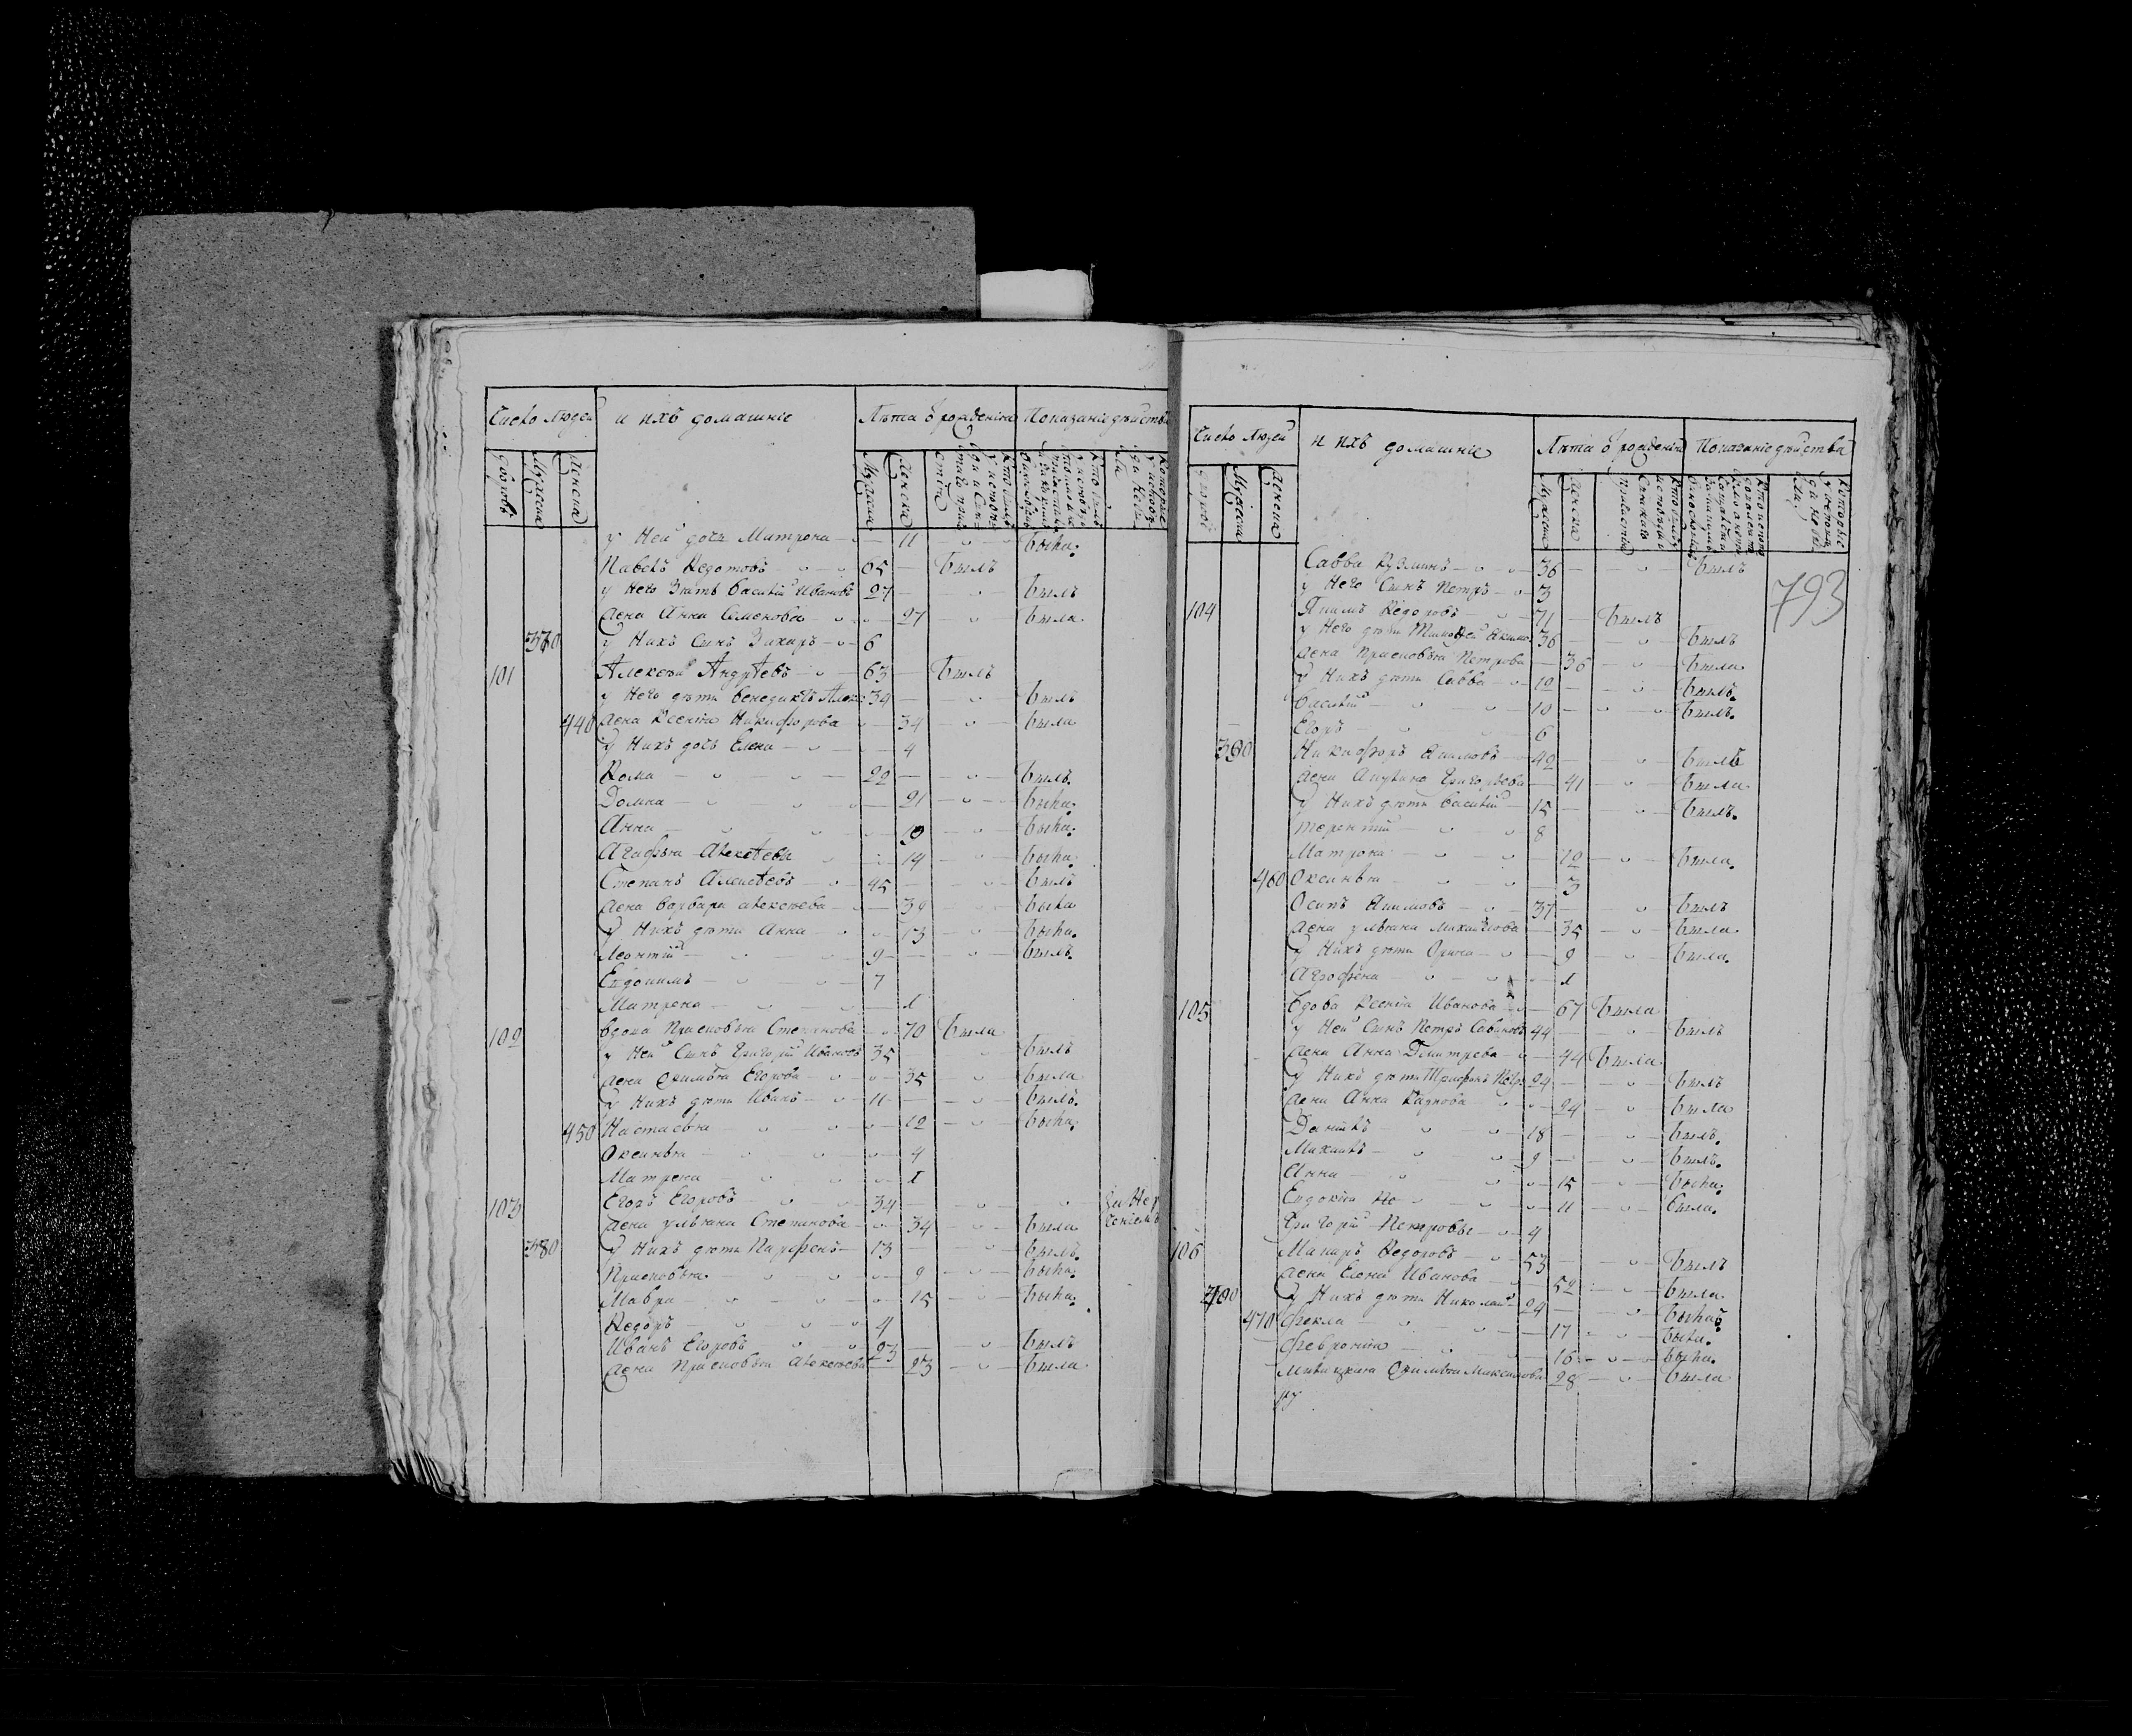 Число людей и ихъ домашніе Лѣта ѿ рожденія Показаніе дѣйства
дворовъ Мужеска Женска Мужеска Женска
у Ней дочь Матрона 11 была.
Павелъ Ѳедотовъ 65 былъ
у Него Зять Василій Ивановъ 27 былъ
жена Анна Семенова 27 была
370 у Нихъ Сынъ Захаръ 6
101 Алексѣй Андрѣевъ 63 былъ
у Него дѣти Венедиктъ Алек: 34 былъ
440 жена Ксенія Никифорова 34 была
у Нихъ дочь Елена 4
Ѳома 22 былъ.
Домна 21 была.
Анна 19 была.
Агафья Алексѣевы 14 была.
Степанъ Алексѣевъ 45 былъ
жена Варвара Алексѣева 39 была
у Нихъ дѣти Анна 13 была.
Леонтій 9 былъ.
Евдокимъ 7
Матрена 1
102 вдова Прасковья Степанова 70 была
у Ней Сынъ Григорій Ивановъ 35 былъ
жена Ефимья Егорова 35 была
у Нихъ дѣти Иванъ 11 былъ.
450 Настасья 12 была.
Оксинья 4
Матрена 1
103 Егоръ Егоровъ 34
жена Ульяна Степанова 34 была
380 у Нихъ дѣти Парфенъ 13 былъ.
Прасковья 9 была.
Мавра 15 была.
Ѳедоръ 4
Иванъ Егоровъ 23 былъ
жена Прасковья Алексѣева 23 была
Число людей и ихъ домашніе Лѣта ѿ рожденія Показаніе дѣйства
Мужеска Женска Мужеска Женска
793
Савва Кузминъ 36 былъ
у Него Сынъ Петръ 3
104 Якимъ Ѳедоровъ 71 былъ
у Него дѣти Тимофей Якимо: 36 былъ
жена Прасковья Петрова 36 была
у Нихъ дѣти Савва 12 былъ.
Василій 10 былъ.
Егоръ 6
390 Никифоръ Якимовъ 42 былъ
жена Акулина Григорьева 41 была
у Нихъ дѣти Василій 15 былъ.
Терентій 8
Матрона 12 была.
460 Оксинья 3
Осипъ Якимовъ 37 былъ
жена Ульяна Михайлова 35 была
у Нихъ дѣти Орина 9 была.
Агрофена 1
105 вдова Ксенія Иванова 67 была
у Ней Сынъ Петръ Савиновъ 44 былъ
жена Анна Дмитрева 44 была
у Нихъ дѣти Трифонъ Петр: 24 былъ
жена Анна Карпова 24 была
Данилъ 18 былъ.
Михаилъ 9 былъ.
Анна 15 была.
Евдокія 11 была.
Григорій Петровы 4
106 Макаръ Ѳедоровъ 53 былъ
жена Елена Иванова 52 была
400 у Нихъ дѣти Николай 24
470 Фекла 17 была.
Февронія 16 была.
Ефимья Максимова 28 была